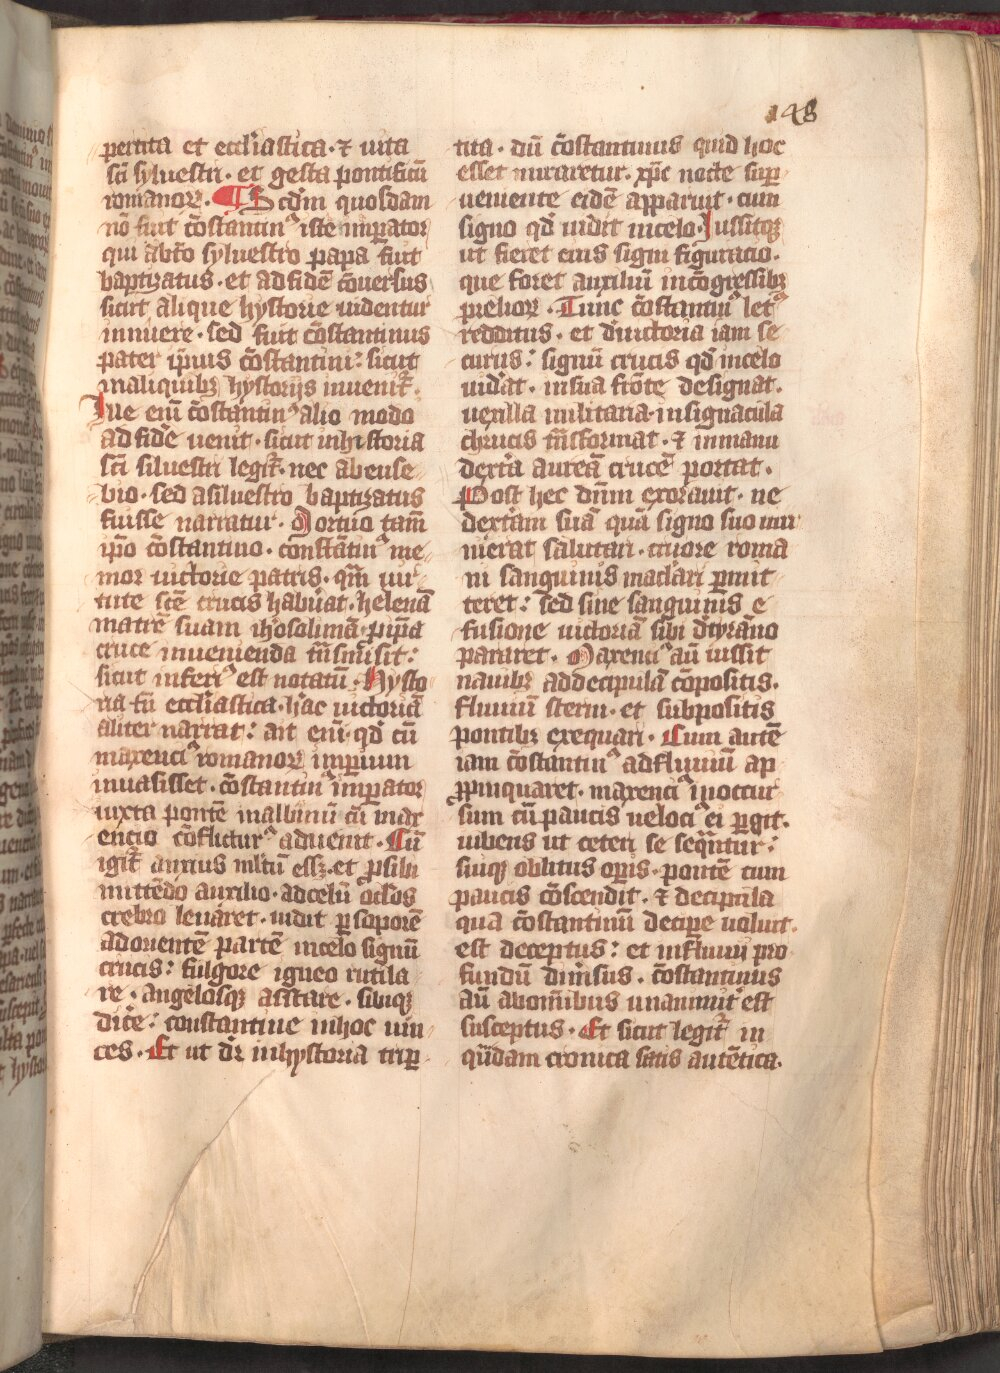 148
pertita et eccl'iastica · ⁊ uita
sc̄i syluestri · et gesta pontificū
romanoꝝ · ¶ Scd̄m quosdam
nō fuit c̄ostantin⁹ iste imꝑator
qui ab̄to syluestro papa fuit
baptizatus · et ad fidē c̄ouersus
sicut alique hystorie uidentur
innuere · sed fuit c̄ostantinus
pater ip̄ius c̄ostantini : sicut
in aliquibꝫ hystorijs inuenit̄ .
Iue eni᷒ c̄ostantin⁹ alio modo
ad fidē uenit · sicut in hystoria
sc̄i siluestri legit̄ · nec ab euse
bio · sed a siluestro baptizatus
fuisse narratur · Mortuo tam̄
ip̄o c̄ostantino · constātin⁹ me
mor uictorie patris · qm̄ uir
tute sc̄e crucis habuerat · helenā
matrē suam ih'osolimā · p̄ip̄a
cruce inuenienda t̄nsmisit :
sicut inferi⁹ est notatū · Hysto
ria tn̄ eccl'iastica · hāc uictoriā
aliter narrat : ait eni᷒ · qd̄ cū
maxenci⁹ romanoꝝ imꝑium
inuasisset · c̄ostantin⁹ imꝑator
iuxta pontē malbinū cū max
encio c̄oflictur⁹ aduenit · Cū
igit̄ anxius mltū essꝫ · et ꝓ sibi
mittēdo auxilio · ad celū oc̄los
crebro leuaret · uidit ꝑ soporē
ad orientē partē in celo signū
crucis : fulgore igneo rutila
re · angelosqꝫ asstare · sibiqꝫ
dic̄e : constantine in hoc uin
ces · Et ut d̄r in hystoria triꝑ
tita · dū c̄ostantinus quid hoc
esset miraretur · xp̄c nocte suꝑ
ueniente eidē apparuit · cum
signo qd̄ uidit in celo · Iussitqꝫ
ut fieret eius signi figuratio ·
que foret auxiliū in cōgressibꝫ
prelioꝝ · Tunc c̄ostantin⁹ let⁹
redditus · et d̄uictoria iam se
curus : signū crucis qd̄ in celo
uid'at · in sua frōte designat ·
uexilla militaria · in signacula
chrucis tn̄sformat · ⁊ in manu
dext̄a aureā crucē portat .
Post hec dn̄m exorauit · ne
dext̄am suā quā signo suo mu
nierat salutari · cruore roma
ni sanguinis mac̄lari ꝑmit
teret : sed sine sanguinis e
fusione uictoriā sibi d̄ tyrāno
pararet · Maxenci⁹ aū iussit
nauibꝫ ad decipulā cōpositis ·
fluuiū sterni · et subpositis
pontibꝫ exequari · Cum autē
iam c̄ostantin⁹ ad fluuiū ap
ꝓpinquaret · maxenci⁹ in occur
sum cū paucis ueloci⁹ ei ꝑgit .
iubens ut ceteri se seq̄rntur :
suiqꝫ oblitus oꝑis · pontē cum
paucis c̄oscendit · ⁊ decipula
qua c̄ostantinū deciꝑe uoluit .
est deceptus : et in fluuij pro
fundū dim̄sus · c̄ostantinus
aū ab om̄ibus unanimit̄ est
susceptus · Et sicut legit̄ in
q̄dam cronica satis autētica ·